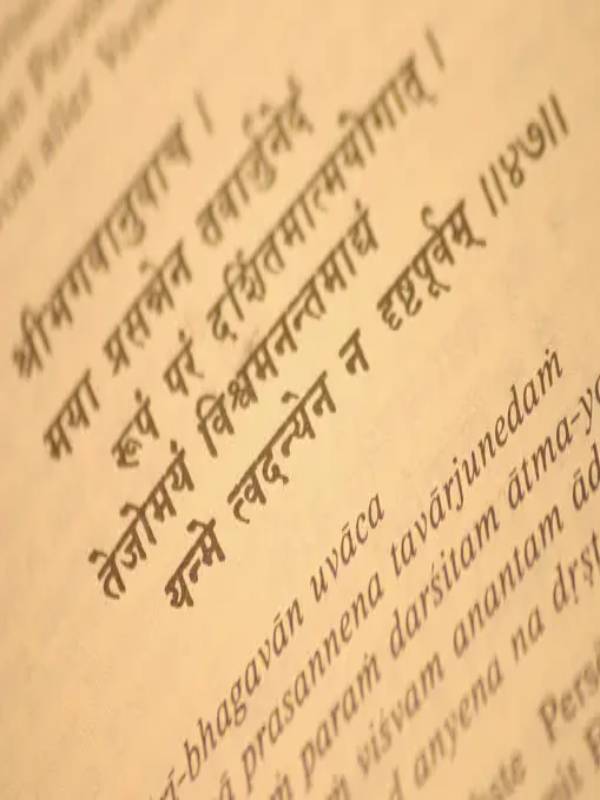 श्रीभगवानुवाच ।
मया प्रसन्नेन तवार्जुनेदं
रूपं परं दर्शितमात्मयोगात् ।
तेजोमयं विश्वमनन्तमाद्यं
यन्मे त्वदन्येन न दृष्टपूर्वम् ॥४७॥
rī-bhagavān uvāca
ā prasannena tavārjunedaṁ
ṁ paraṁ darśitam ātma-yo
ṁ viśvam anantam ād
d anyena na dṛṣṭ
hste Persö
mit